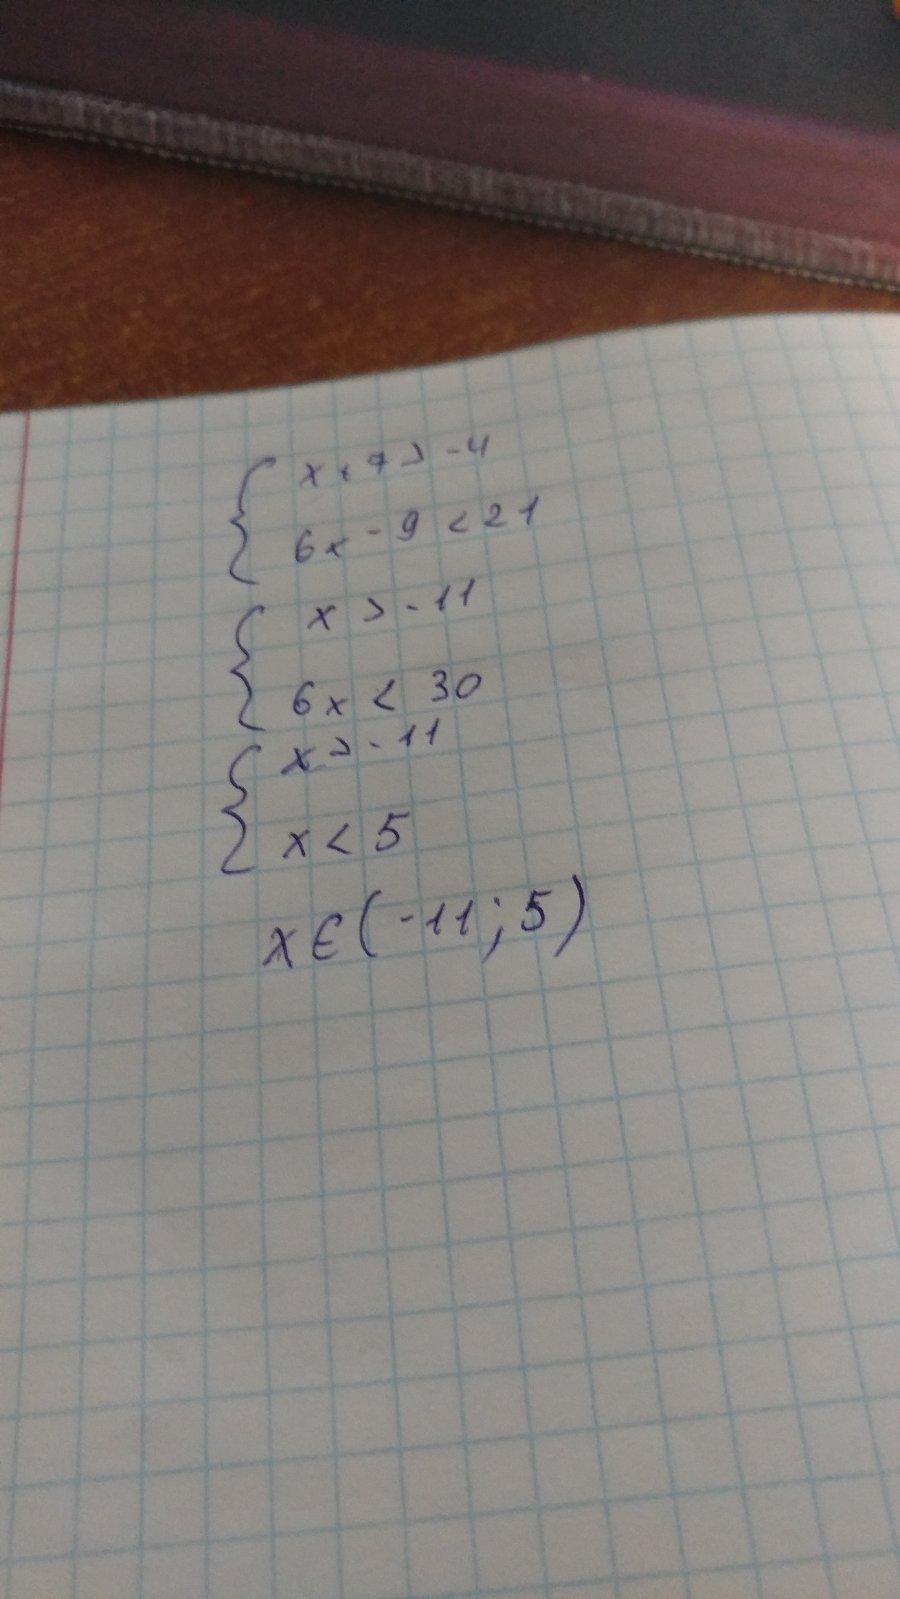 x + 7 > -4
6x - 9 < 21
x > -11
6x < 30
x > -11
x < 5
x ∈ (-11; 5)